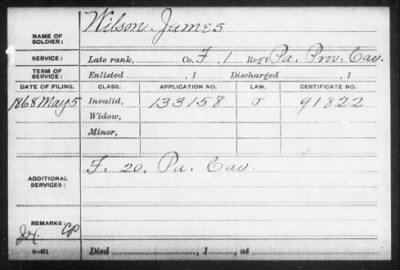 NAME OF SOLDIER: Wilson James
SERVICE: Late rank, Co. F. 1 Reg't Pa. Prov. Cav.
TERM OF SERVICE: Enlisted , 1 Discharged , 1
DATE OF FILING. CLASS. APPLICATION NO. LAW. CERTIFICATE NO.
1868 May 5 Invalid, 133158 91822
Widow,
Minor,
ADDITIONAL SERVICES: F. 20. Pa. Cav.
REMARKS:
Died , 1 , at